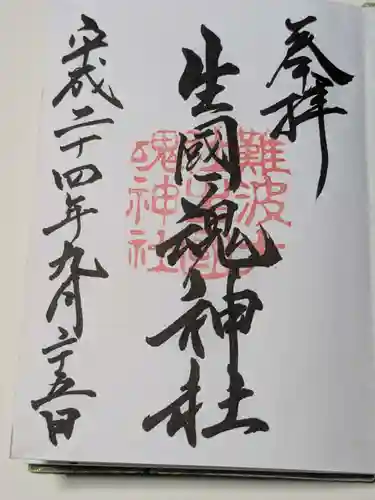 奉拝
生國魂神社
平成二十四年九月二十五日
難波大
社生國
魂神社